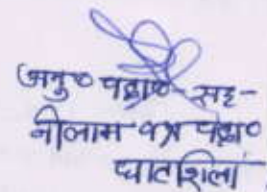 अनु० पदा०-सह-
नीलाम पत्र पदा०
घाटशिला